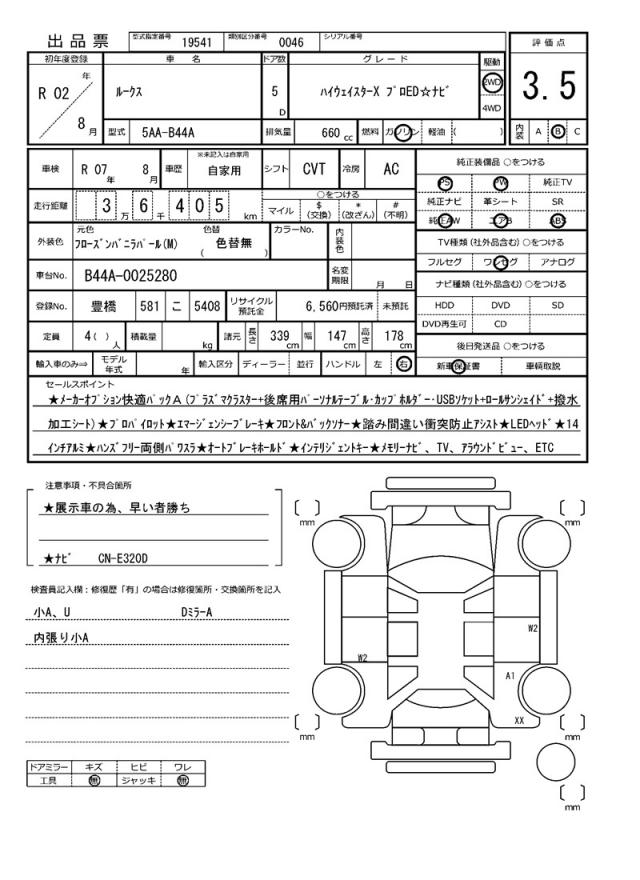 出品票
型式指定番号 19541 類別区分番号 0046 シリアル番号
評価点
3.5
内装 A B C
初年度登録 車名 ドア数 グレード 駆動
R 02 年 8 月
ルークス
5 D
ハイウェイスターX プロED☆ナビ
2WD
4WD
型式 5AA-B44A 排気量 660 cc 燃料 ガソリン 軽油 ( )
車検 R 07 年 8 月 車歴 ※未記入は自家用 自家用 シフト CVT 冷房 AC
走行距離 3 万 6 千 4 0 5 km
○をつける
マイル $ (交換) * (改ざん) # (不明)
外装色 元色 フローズンバニラパール(M) 色替 ( 色替無 ) カラーNo. 内装色
車台No. B44A-0025280 名変期限 月 日
登録No. 豊橋 581 こ 5408 リサイクル預託金 6,560円預託済 未預託
定員 4( ) 人 積載量 kg 諸元 長さ 339 cm 幅 147 cm 高さ 178 cm
輸入車のみ⇨ モデル年式 年 輸入区分 ディーラー 並行 ハンドル 左 右
純正装備品 ○をつける
PS PW 純正TV
純正ナビ 革シート SR
純正AW エアB ABS
TV種類 (社外品含む) ○をつける
フルセグ ワンセグ アナログ
ナビ種類 (社外品含む) ○をつける
HDD DVD SD
DVD再生可 CD
後日発送品 ○をつける
新車保証書 車輌取説
セールスポイント
★メーカーオプション快適パックA(プラズマクラスター+後席用パーソナルテーブル・カップホルダー・USBソケット+ロールサンシェイド+撥水
加工シート)★プロパイロット★エマージェンシーブレーキ★フロント&バックソナー★踏み間違い衝突防止アシスト★LEDヘッド★14
インチアルミ★ハンズフリー両側パワスラ★オートブレーキホールド★インテリジェントキー★メモリーナビ、TV、アラウンドビュー、ETC
注意事項・不具合箇所
★展示車の為、早い者勝ち
★ナビ CN-E320D
検査員記入欄：修復歴「有」の場合は修復箇所・交換箇所を記入
小A、U DミラーA
内張り小A
ドアミラー キズ ヒビ ワレ
工具 無 ジャッキ 無
mm
mm
W2
W2
A1
XX
mm
mm
mm